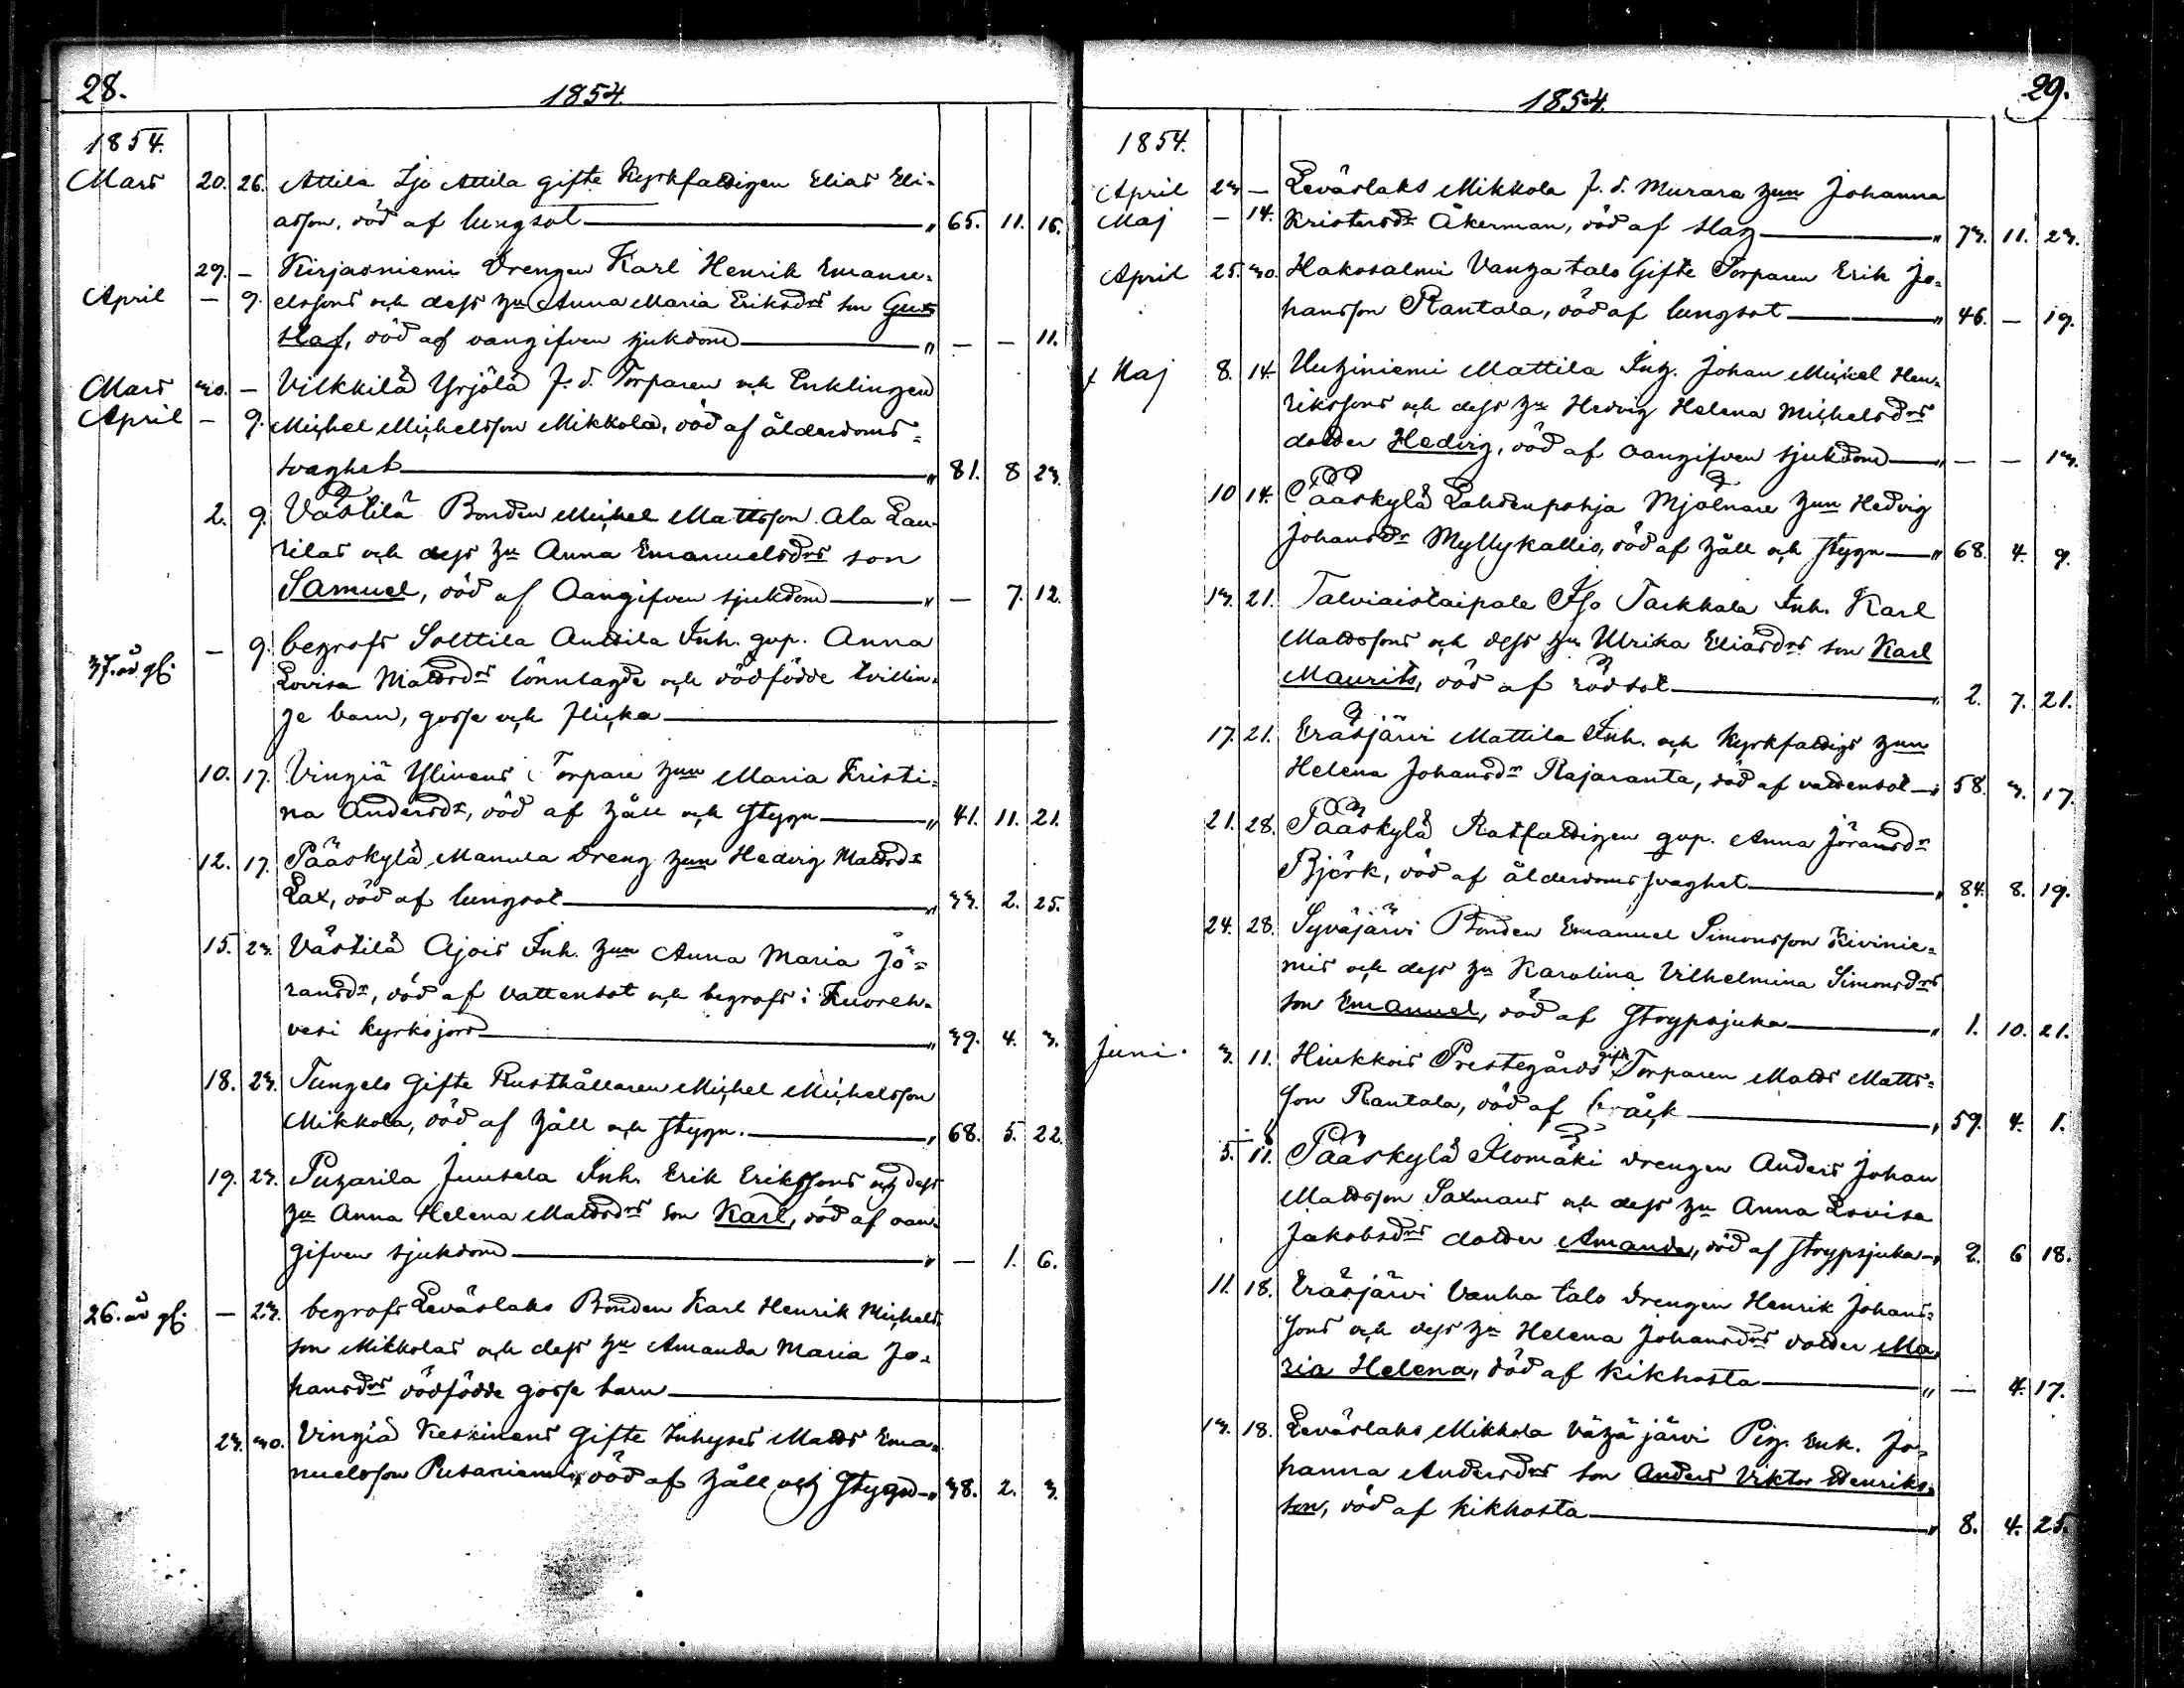 28.
1854.
1854.
Mars 20. 26. Attila Ijo Attila gifte Kyrkfattigen Elias Eli-
asson, död af lungsot " 65. 11. 16.
29. – Kirjasniemi Drengen Karl Henrik Emanu-
April – 9. elssons och dess hu Anna Maria Eriksdrs son Gus
staf, död af oangifven sjukdom " – – 11.
Mars 30. – Vilkkilä Yrjölä f. d. Torparen och Enklingen
April – 9. Michel Michelsson Mikkola, död af ålderdoms-
svaghet " 81. 8 23.
2. 9. Västilä Bonden Michel Mattsson Ala Lau-
rilas och dess hu Anna Emanuelsdrs son
Samuel, död af Oangifven sjukdom " – 7. 12.
37. år gl. – 9. begrofs Solttila Anttila Inh. qvp. Anna
Lovisa Mattsdrs lönnlagde och dödfödde tvillin-
ge barn, gosse och flicka
10. 17. Vinhiä Ylinens Torpare hun Maria Kristi-
na Andersdr, död af håll och stygn " 41. 11. 21.
12. 17. Pääskylä Manula dreng hun Hedvig Mattsdr
Lax, död af lungsot " 33. 2. 25.
15. 23. Västilä Ajois Inh. hun Anna Maria Jö-
ransdr, död af vattensot och begrofs i Kuoreh-
vesi kyrkojord " 39. 4. 3.
18. 23. Tungelo Gifte Rusthållaren Michel Michelsson
Mikkola, död af håll och stygn. " 68. 5. 22.
19. 23. Puharila Juusela Inh. Erik Erikssons och dess
hu Anna Helena Mattsdrs son Karl, död af oan-
gifven sjukdom " – 1. 6.
26. år gl. – 23. begrofs Leväslaks Bonden Karl Henrik Michels
son Mikkolas och dess hu Amanda Maria Jo-
hansdrs dödfödde gosse barn
23. 30. Vinhiä Keskinens Gifte Inhyses Matts Ema-
nuelsson Putaniemi, död af håll och Stygn " 38. 2. 3.
29.
1854.
1854.
April 23 – Leväslaks Mikkola f. d. Murare hun Johanna
Maj – 14. Kristersdr Åkerman, död af slag " 73. 11. 23.
April 25. 30. Hakosalmi Vanha talo Gifte Torparen Erik Jo-
hansson Rantala, död af lungsot " 46. – 19.
Maj 8. 14. Uuhiniemi Mattila Inh. Johan Michel Hen-
rikssons och dess hu Hedvig Helena Michelsdrs
dotter Hedvig, död af oangifven sjukdom " – – 13.
10 14. Pääskylä Lahdenpohja Mjölnare hun Hedvig
Johansdr Myllykallio, död af håll och stygn " 68. 4. 9.
13. 21. Talviaistaipale Iso Tarkkala Inh. Karl
Mattssons och dess hu Ulrika Eliasdrs son Karl
Maurits, död af rödsot " 2. 7. 21.
17. 21. Eräsjärvi Mattila Inh. och Kyrkfattigs hun
Helena Johansdr Rajaranta, död af vattensot " 58. 3. 17.
21. 28. Pääskylä Rotfattigen qvp. Anna Jöransdr
Björk, död af ålderdomssvaghet " 84. 8. 19.
24. 28. Syväjärvi Bonden Emanuel Simonsson Kivinie-
mis och dess hu Karolina Vilhelmina Simonsdrs
son Emanuel, död af Strypsjuka " 1. 10. 21.
Juni. 3. 11. Hiukkois Prestegårds gifte Torparen Matts Matts-
son Rantala, död af bråck " 59. 4. 1.
5. 11. Pääskylä Ilomäki drengen Anders Johan
Mattsson Saxmans och dess hu Anna Lovisa
Jakobsdrs dotter Amanda, död af strypsjuka " 2. 6 18.
11. 18. Eräsjärvi Vanha talo drengen Henrik Johans-
sons och dess hu Helena Johansdrs dotter Ma-
ria Helena, död af kikhosta " – 4. 17.
13. 18. Leväslaks Mikkola Vähä järvi Pig. Enk. Jo-
hanna Andersdrs son Anders Viktor Henriks-
son, död af kikhosta " 8. 4. 25.